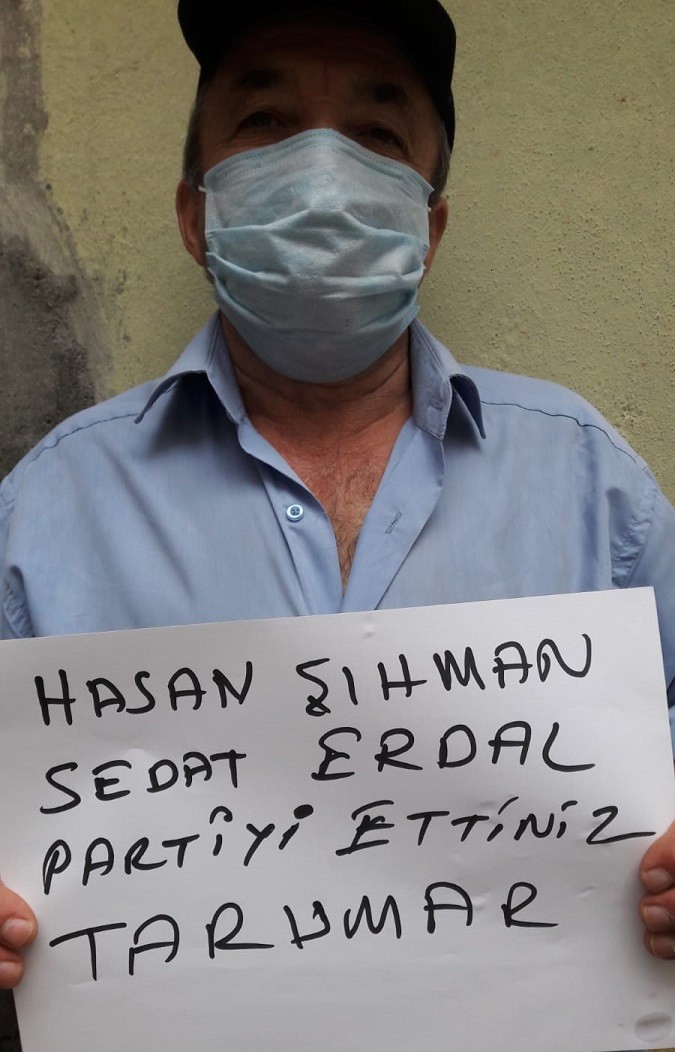 HASAN ŞIHMAN
SEDAT ERDAL
PARTİYİ ETTİNİZ
TARUMAR